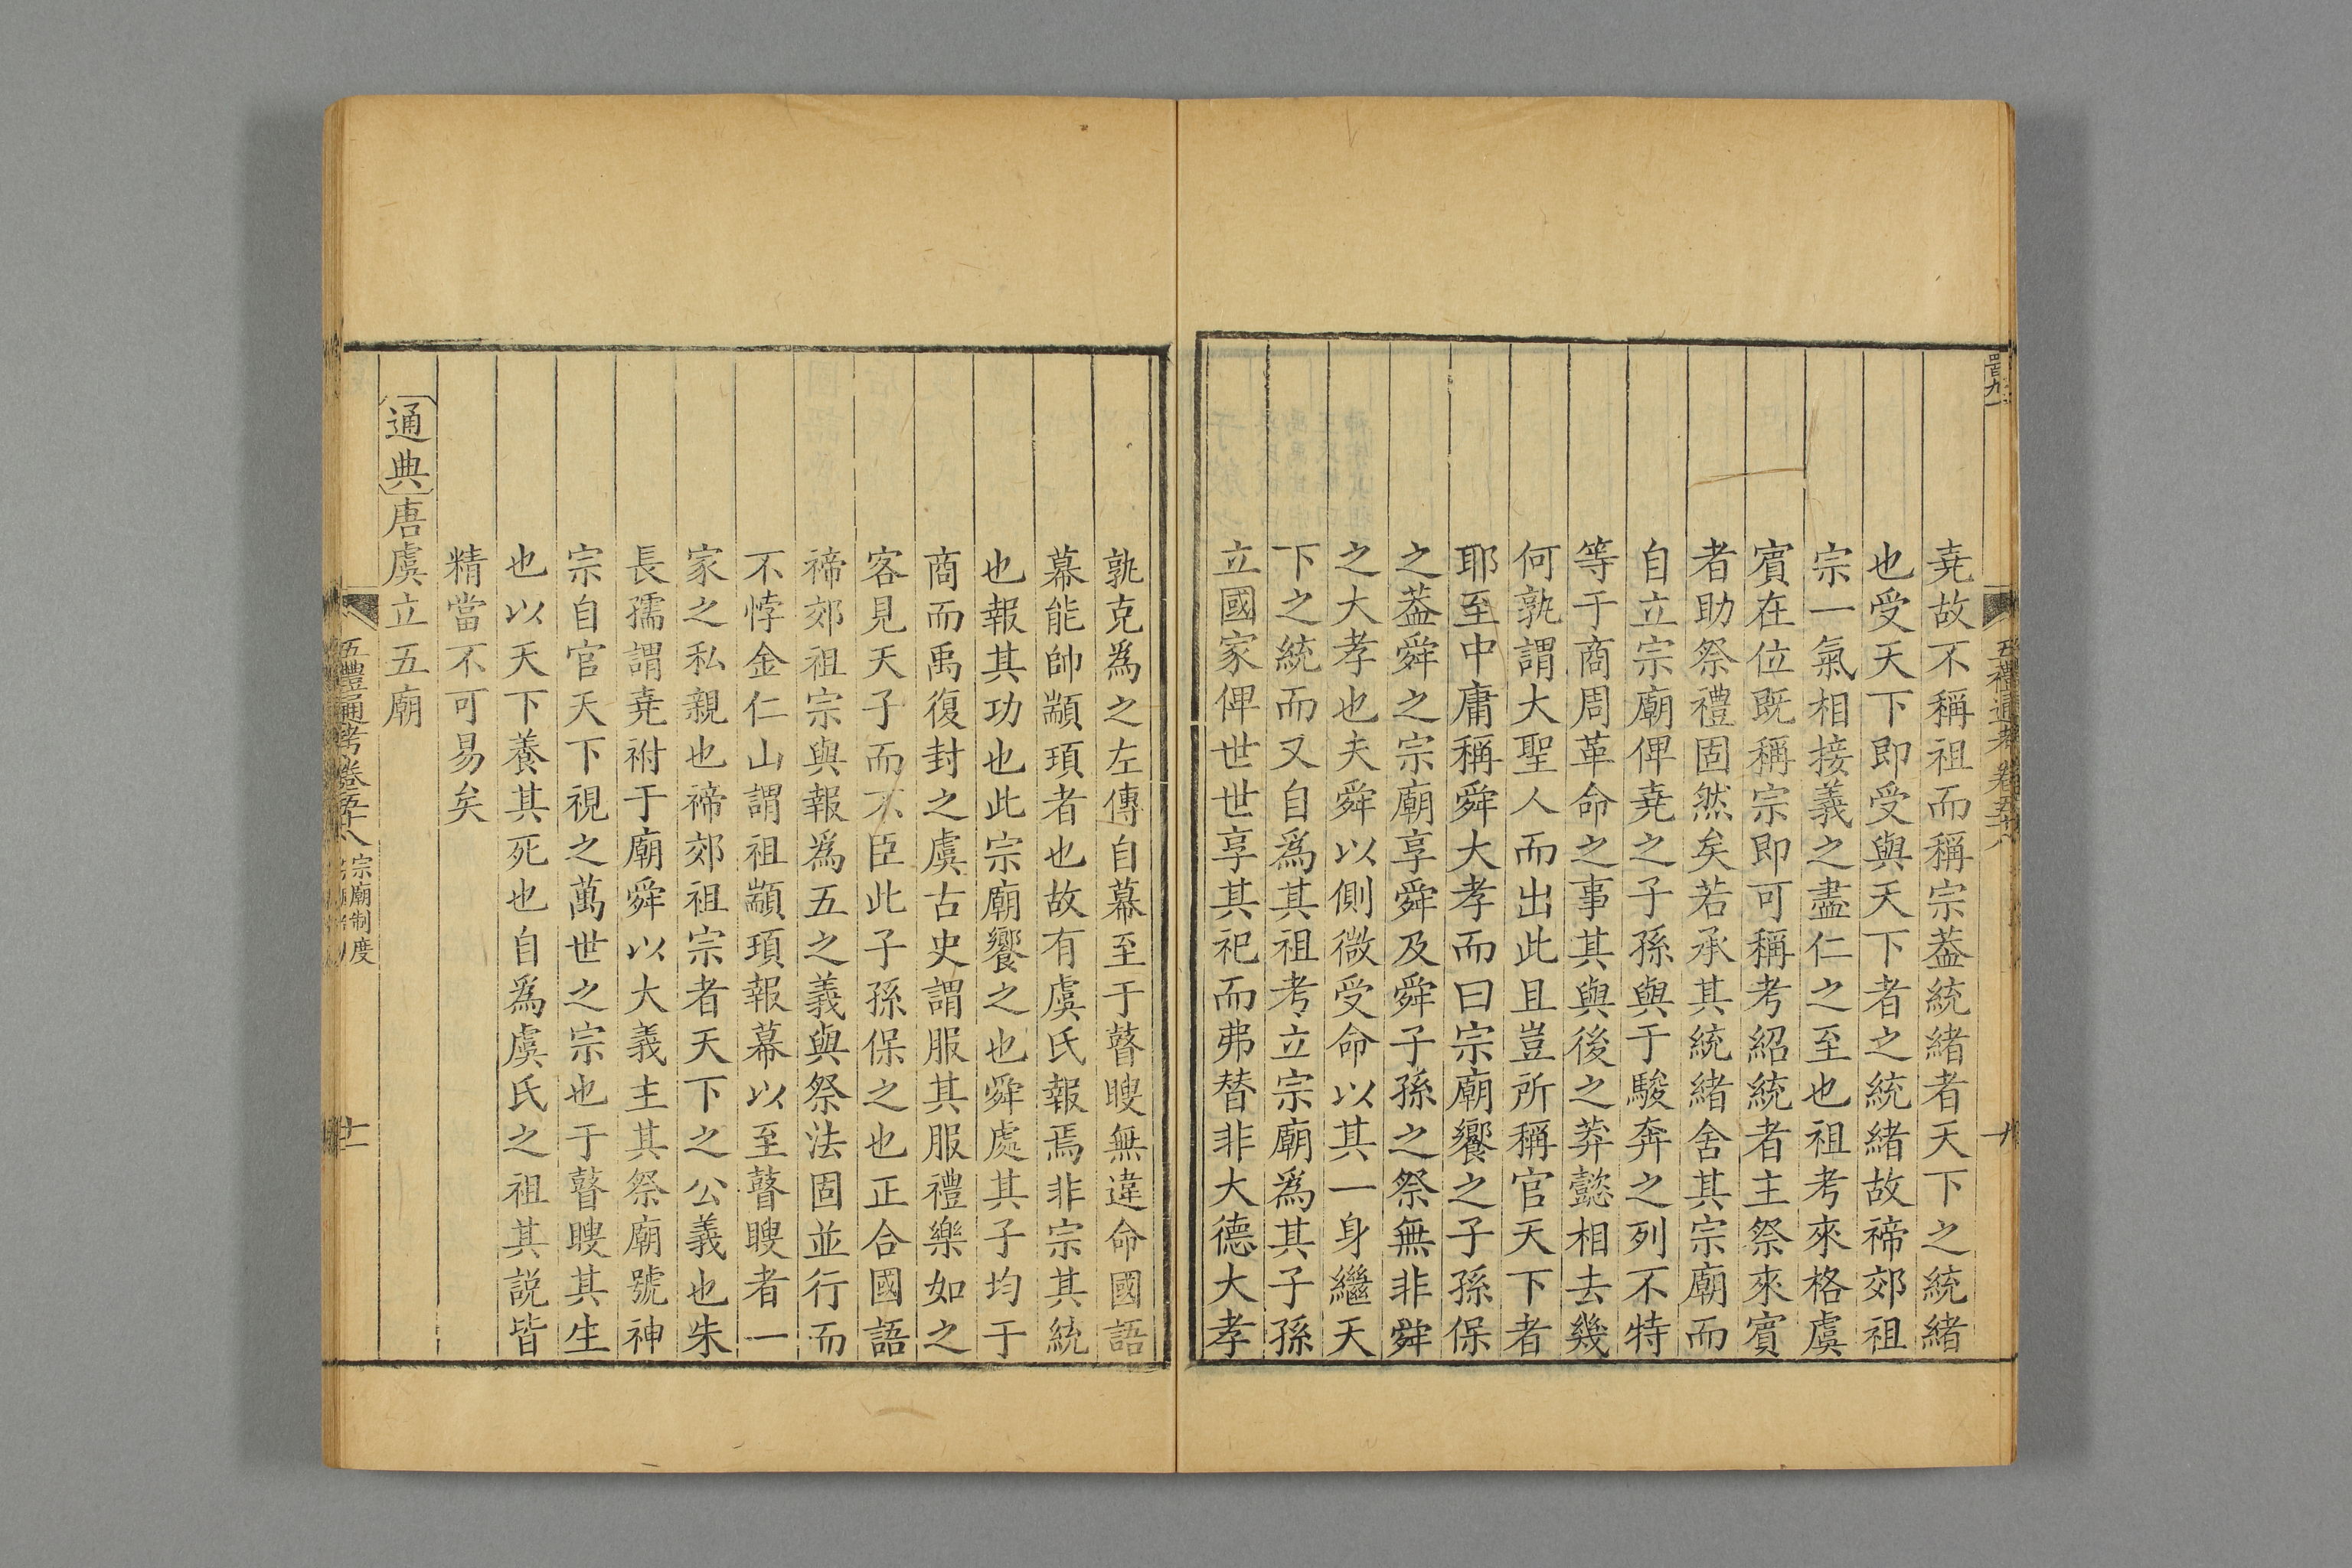 堯故不稱祖而稱宗葢統緒者天下之統緒
也受天下即受與天下者之統緒故禘郊祖
宗一氣相接義之盡仁之至也祖考來格虞
賓在位既稱宗即可稱考紹統者主祭來賓
者助祭禮固然矣若承其統緒舍其宗廟而
自立宗廟俾堯之子孫與于駿奔之列不特
等于商周革命之事其與後之莽懿相去幾
何孰謂大聖人而出此且豈所稱官天下者
耶至中庸稱舜大孝而曰宗廟饗之子孫保
之葢舜之宗廟享舜及舜子孫之祭無非舜
之大孝也夫舜以側微受命以其一身繼天
下之統而又自為其祖考立宗廟為其子孫
立國家俾世世享其祀而弗替非大德大孝
孰克為之左傳自幕至于瞽瞍無違命國語
幕能帥顓頊者也故有虞氏報焉非宗其統
也報其功也此宗廟饗之也舜處其子均于
商而禹復封之虞古史謂服其服禮樂如之
客見天子而不臣此子孫保之也正合國語
禘郊祖宗與報為五之義與祭法固並行而
不悖金仁山謂祖顓頊報幕以至瞽瞍者一
家之私親也禘郊祖宗者天下之公義也朱
長孺謂堯祔于廟舜以大義主其祭廟號神
宗自官天下視之萬世之宗也于瞽瞍其生
也以天下養其死也自為虞氏之祖其説皆
精當不可易矣
通典唐虞立五廟
五禮通考卷五十八 宗廟制度 十